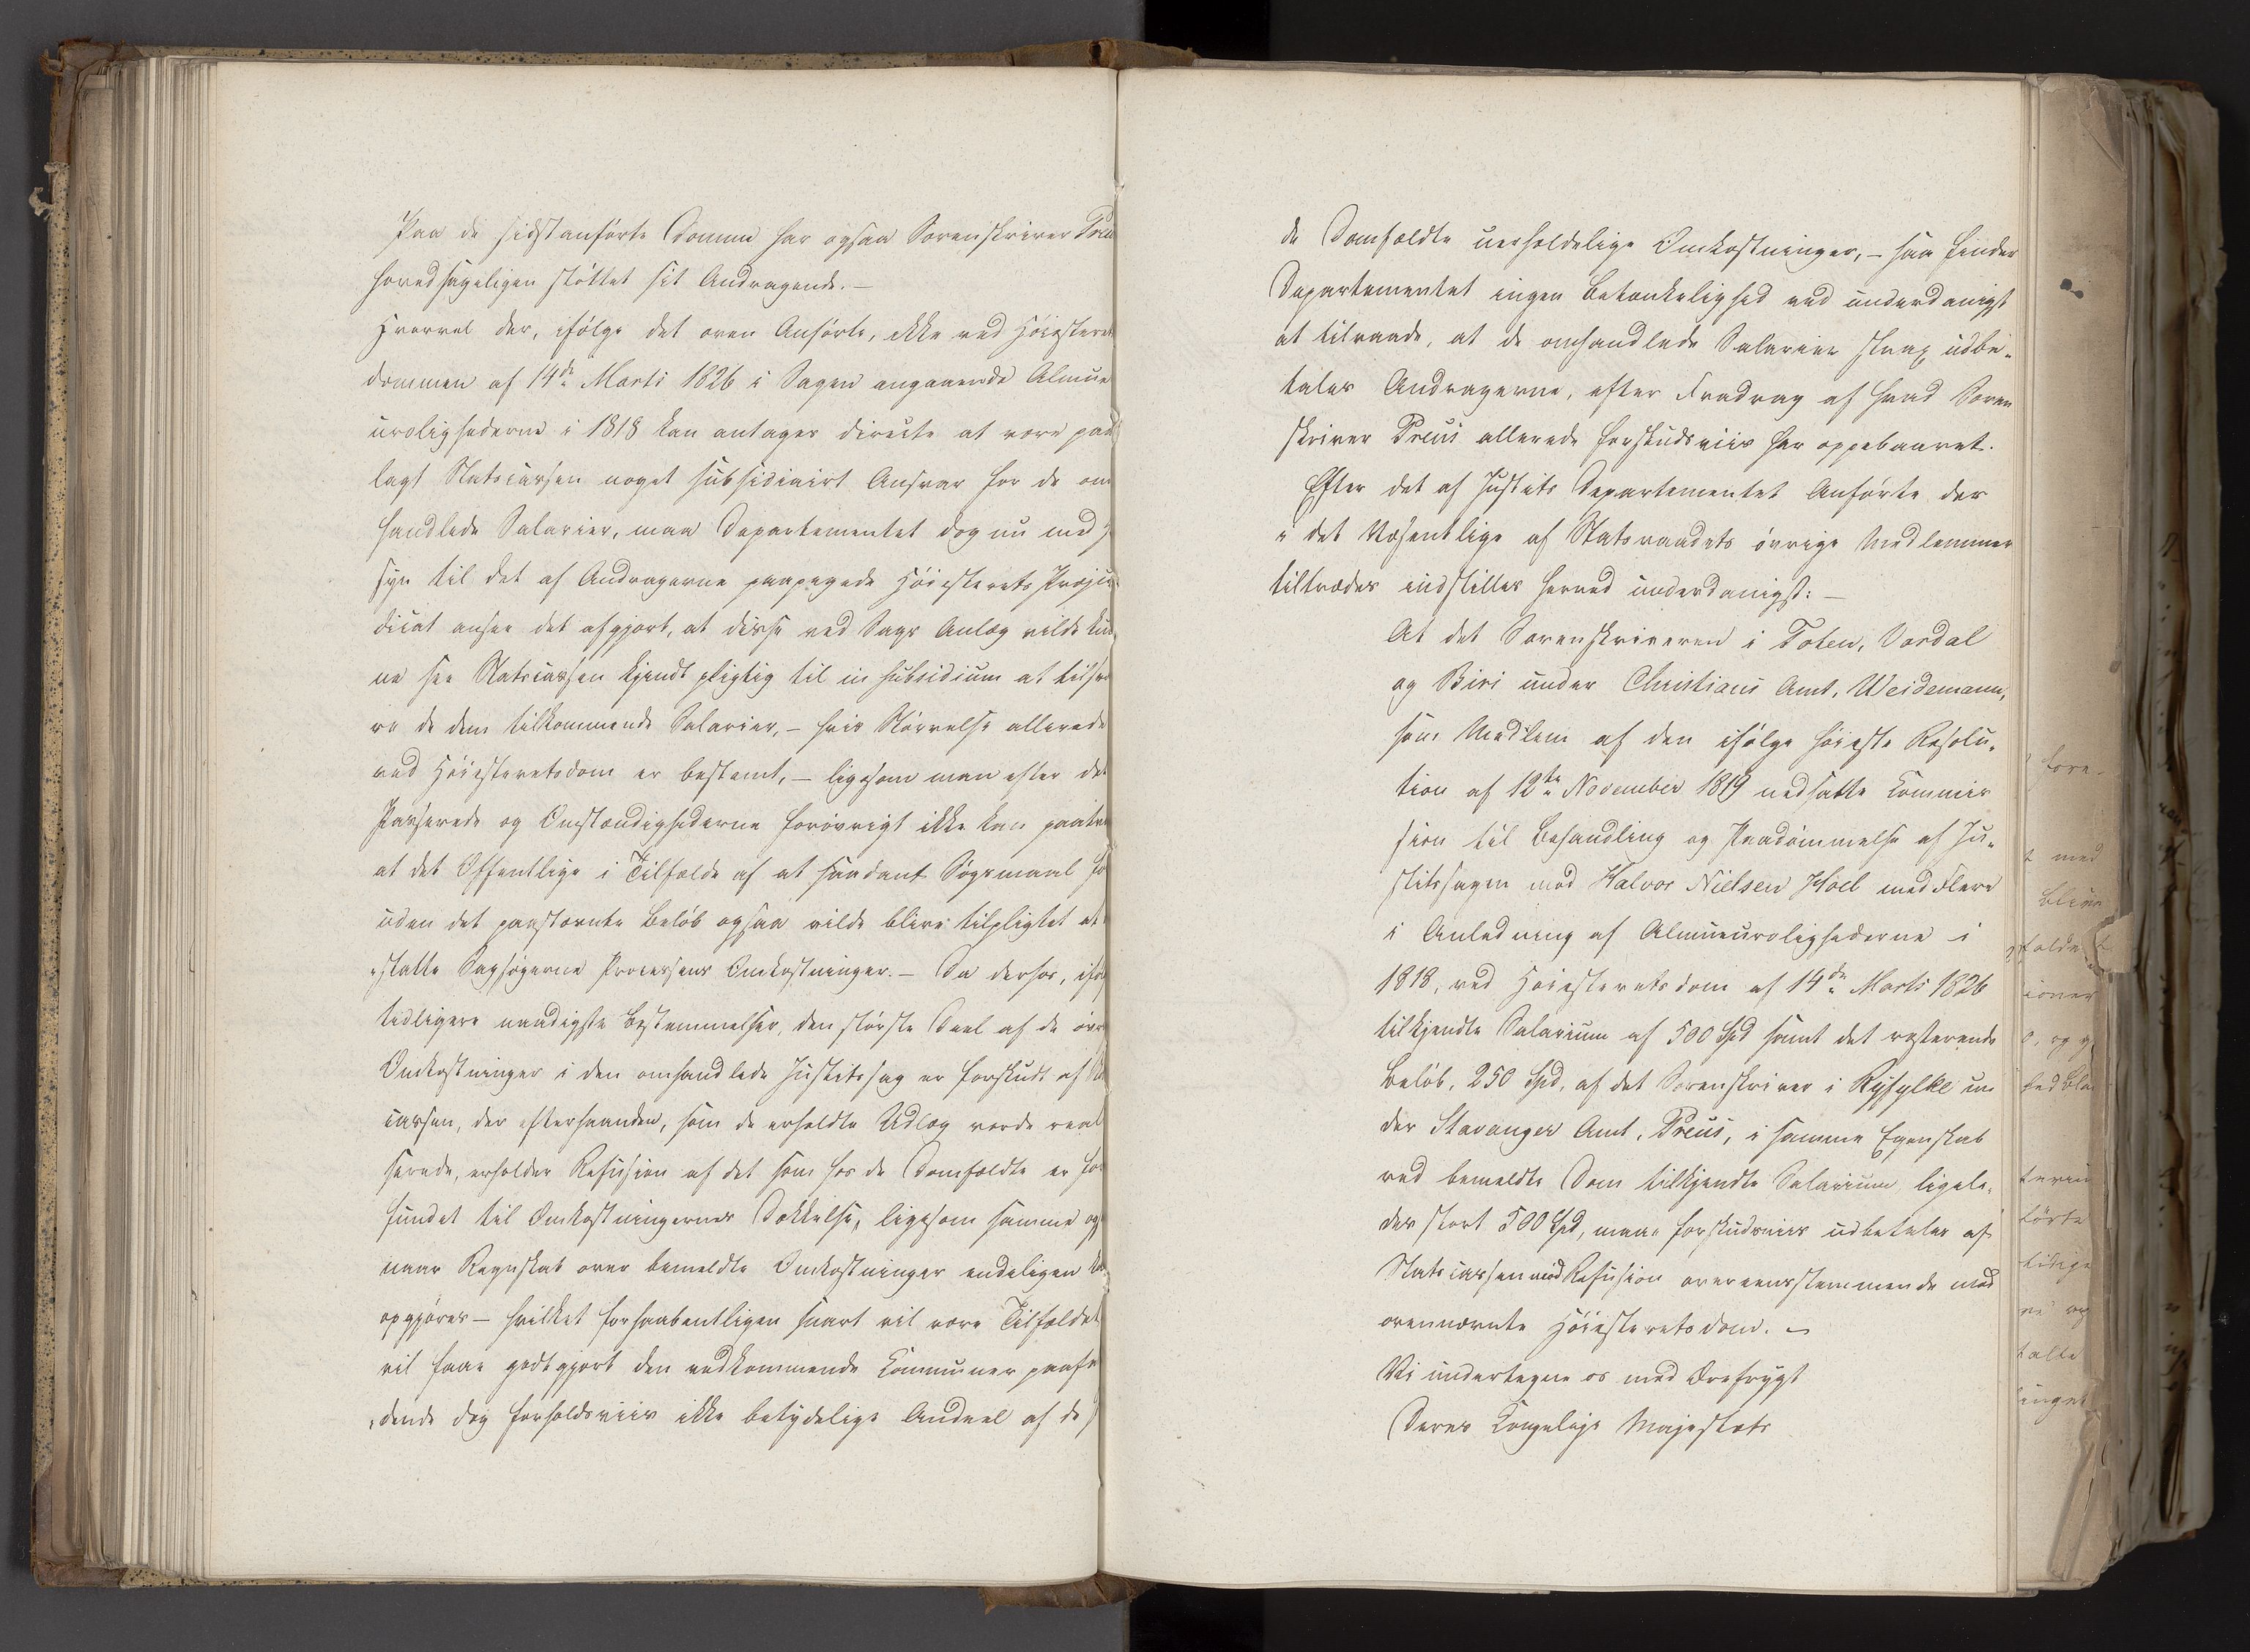 Paa de sidstanførte Domme har ogsaa Sorenskriver Preu
hovedsageligen støttet sit Andragende. –
Hvorvel der, ifølge det oven Anførte, ikke ved Høiesteret
dommen af 14de Marts 1826 i Sagen angaaende Almue
urolighederne i 1818 kan antages directe at være paa
lagt Statscassen noget subsidiairt Ansvar for de om
handlede Salarier, maa Departementet dog nu med
syn til det af Andragerne paapegede Høiesterets Præju
dicat ansee det afgjort, at disse ved Sags Anlæg vilde kun
ne see Statscassen kjendt pligtig til in subsidium at tilsva
re de dem tilkommende Salarier, – hvis Størrelse allerede
ved Høiesteretsdom er bestemt, – ligesom man efter det
Passerede og Omstændighederne forøvrigt ikke kan paatv
at det Offentlige i Tilfælde af et saadant Søgsmaal for
uden det paastævnte Beløb ogsaa vilde blive tilpligtet at
statte Sagsøgerne Processens Omkostninger. – Da derhos, ifø
tidligere naadigste Bestemmelser, den største Deel af de øvr
Omkostninger i den omhandlede Justitssag er forskudt af St
cassen, der efterhaanden, som de erholdte Udlæg vorde reali
serede, erholder Refusion af det som hos de Domfældte er for
fundet til Omkostningernes Dækkelse, ligesom samme og
naar Regnskab over bemeldte Omkostninger endeligen k
opgjøres – hvilket forhaabentligen snart vil være Tilfældet
vil faae godtgjort den vedkommende Communer paahvi
dende dog forholdsviis ikke betydelige Andeel af de
de Domfældte uerholdelige Omkostninger, – saa finder
Departementet ingen Betænkelighed ved underdanigst
at tilraade, at de omhandlede Salarier strax udbe-
tales Andragerne, efter Fradrag af hvad Soren
skriver Preus allerede forskudsviis har oppebaaret.
Efter det af Justits Departementet Anførte der
i det Væsentlige af Statsraadets øvrige Medlemmer
tiltrædes indstilles herved underdanigst: –
At det Sorenskriveren i Toten, Vardal
og Biri under Christians Amt, Weidemann,
som Medlem af den ifølge høieste Resolu-
tion af 12te November 1819 nedsatte Commis
sion til Behandling og Paadømmelse af Ju-
stitssagen mod Halvor Nielsen Hoel med Flere
i Anledning af Almueurolighederne i
1818, ved Høiesteretsdom af 14de Marts 1826
tilkjendte Salarium af 500 Spd samt det resterende
Beløb, 250 Spd, af det Sorenskriver i Ryfylke un
der Stavanger Amt, Preus, i samme Egenskab
ved bemeldte Dom tilkjendte Salarium, ligele-
des stort 500 Spd, maae forskudsviis udbetales af
Statscassen mod Refusion overeensstemmende med
ovennævnte Høiesteretsdom. –
Vi undertegne os med Ærefrygt
Deres Kongelige Majestæts